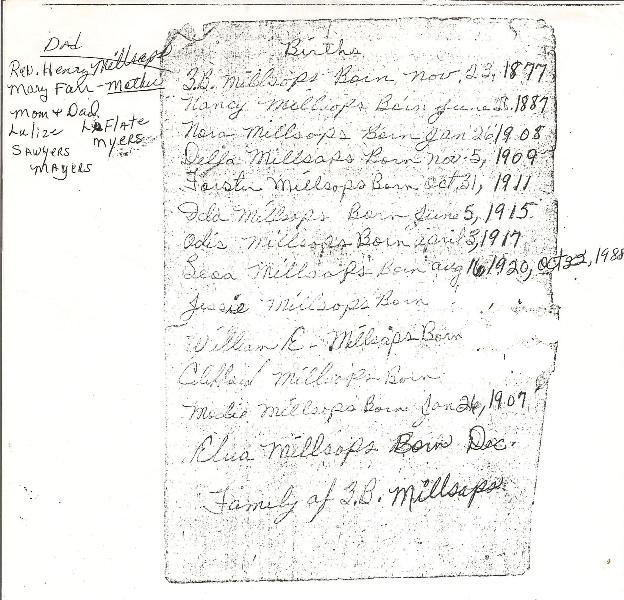 Dad
Rev. Henry Millsaps
Mary Farr - Mother
Mom & Dad
Lulize LaFlate
Myers
Sawyers
Mayers
Births
Millsops Born Nov. 23, 1877
Nancy Millsops Born June 1887
Nora Millsops Born Jan 26 1908
Della Millsaps Born Nov. 5, 1909
Millsops Born Oct, 31, 1911
Millsops Born June 5, 1915
Odis Millsops Born april 3, 1917
Millsaps Born aug 16 1920, Oct 22, 1988
Jessie Millsops Born
William E - Millsaps Born
Millsops Born
Millsops Born Jan 26, 1907
Millsops Born Dec.
Family of Millsaps